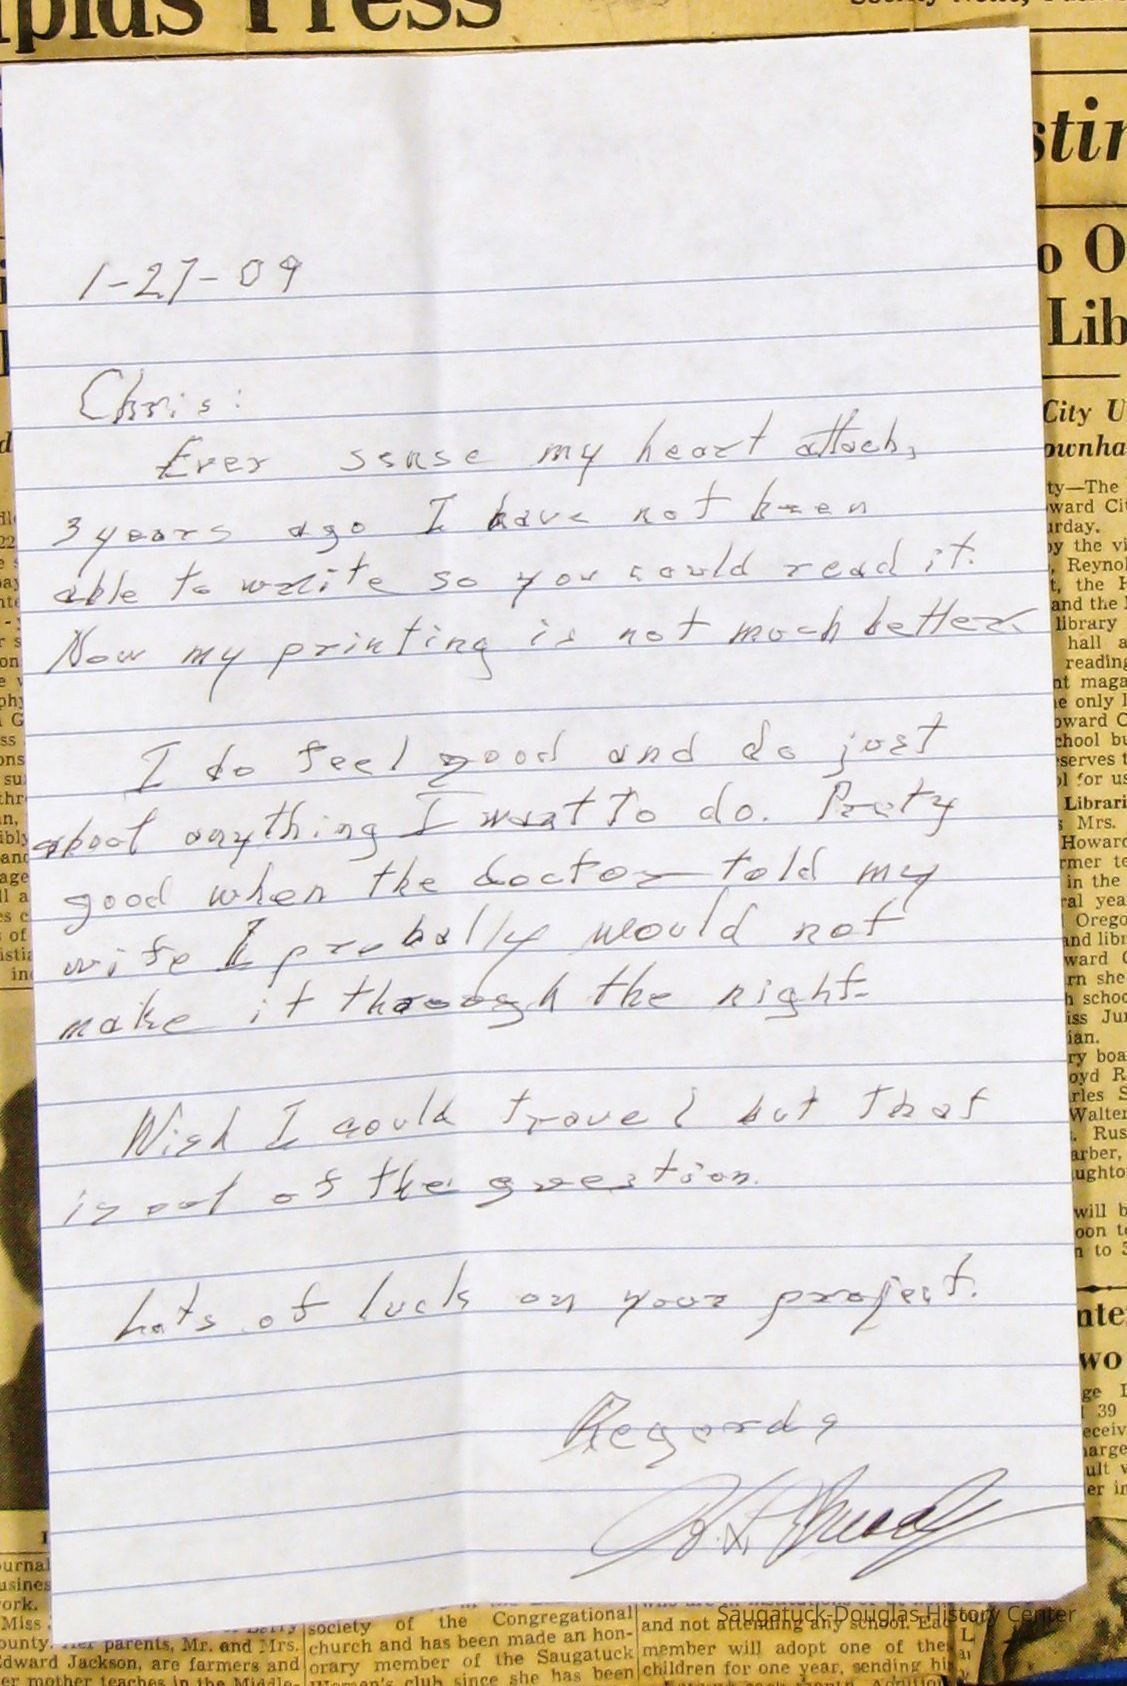 Press
1-27-09
Chris:
Ever sense my heart attack,
3 years ago I have not been
able to write so you could read it.
Now my printing is not much better
I do feel good and do just
about anything I want to do. Prety
good when the doctor told my
wife I probally would not
make it through the night.
Wish I could travel but that
is out of the question.
Lots of luck on your project.
Regards
Lib
City U
ty—The
ward Cit
urday.
by the vi
Reynol
the H
and the
library
hall a
reading
nt maga
only l
oward C
chool bu
serves t
for us
Librari
Mrs.
Howard
rmer te
in the
ral yea
Orego
and libr
ward C
rn she
h schoo
iss Jun
ian.
ry boa
oyd R
rles S
Walter
Rus
arber,
ughto
will b
oon to
to 3
two
39
receiv
harge
ult v
er in
society of the Congregational
church and has been made an hon-
orary member of the Saugatuck
Woman's club since she has been
and not attending any school. Eac
member will adopt one of the
children for one year, sending hi
ournal
usines
ork.
Miss
ounty. Her parents, Mr. and Mrs.
Edward Jackson, are farmers and
er mother teaches in the Middle-
Saugatuck-Douglas History Center